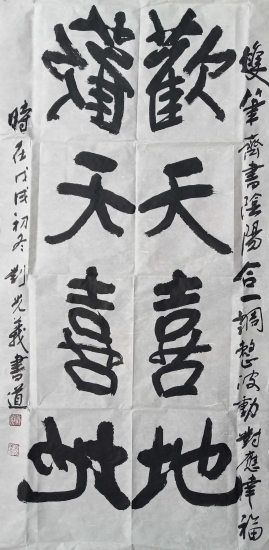 雙筆齊書陰陽合一調整波動對應福
歡天喜地
歡天喜地
時在戊戌初冬劉光義書道